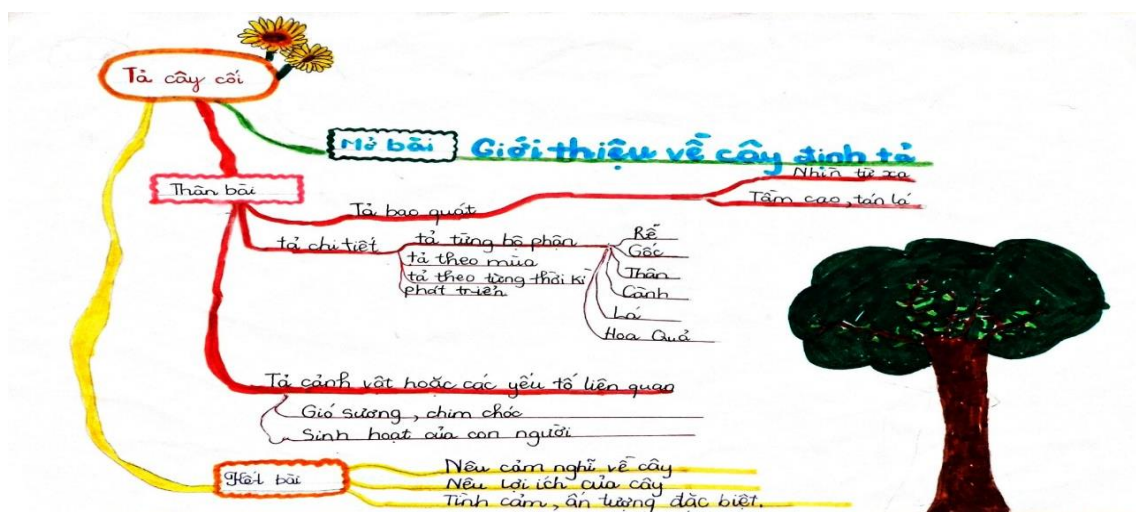 Tả cây cối
Mở bài Giới thiệu về cây định tả
Thân bài
Tả bao quát
Nhìn từ xa
Tầm cao, tán lá
tả chi tiết
tả từng bộ phận
Rễ
Gốc
Thân
Cành
Lá
Hoa Quả
tả theo mùa
tả theo từng thời kì
phát triển
Tả cảnh vật hoặc các yếu tố liên quan
Gió sương, chim chóc
Sinh hoạt của con người
Kết bài
Nêu cảm nghĩ về cây
Nêu lợi ích của cây
Tình cảm, ấn tượng đặc biệt.